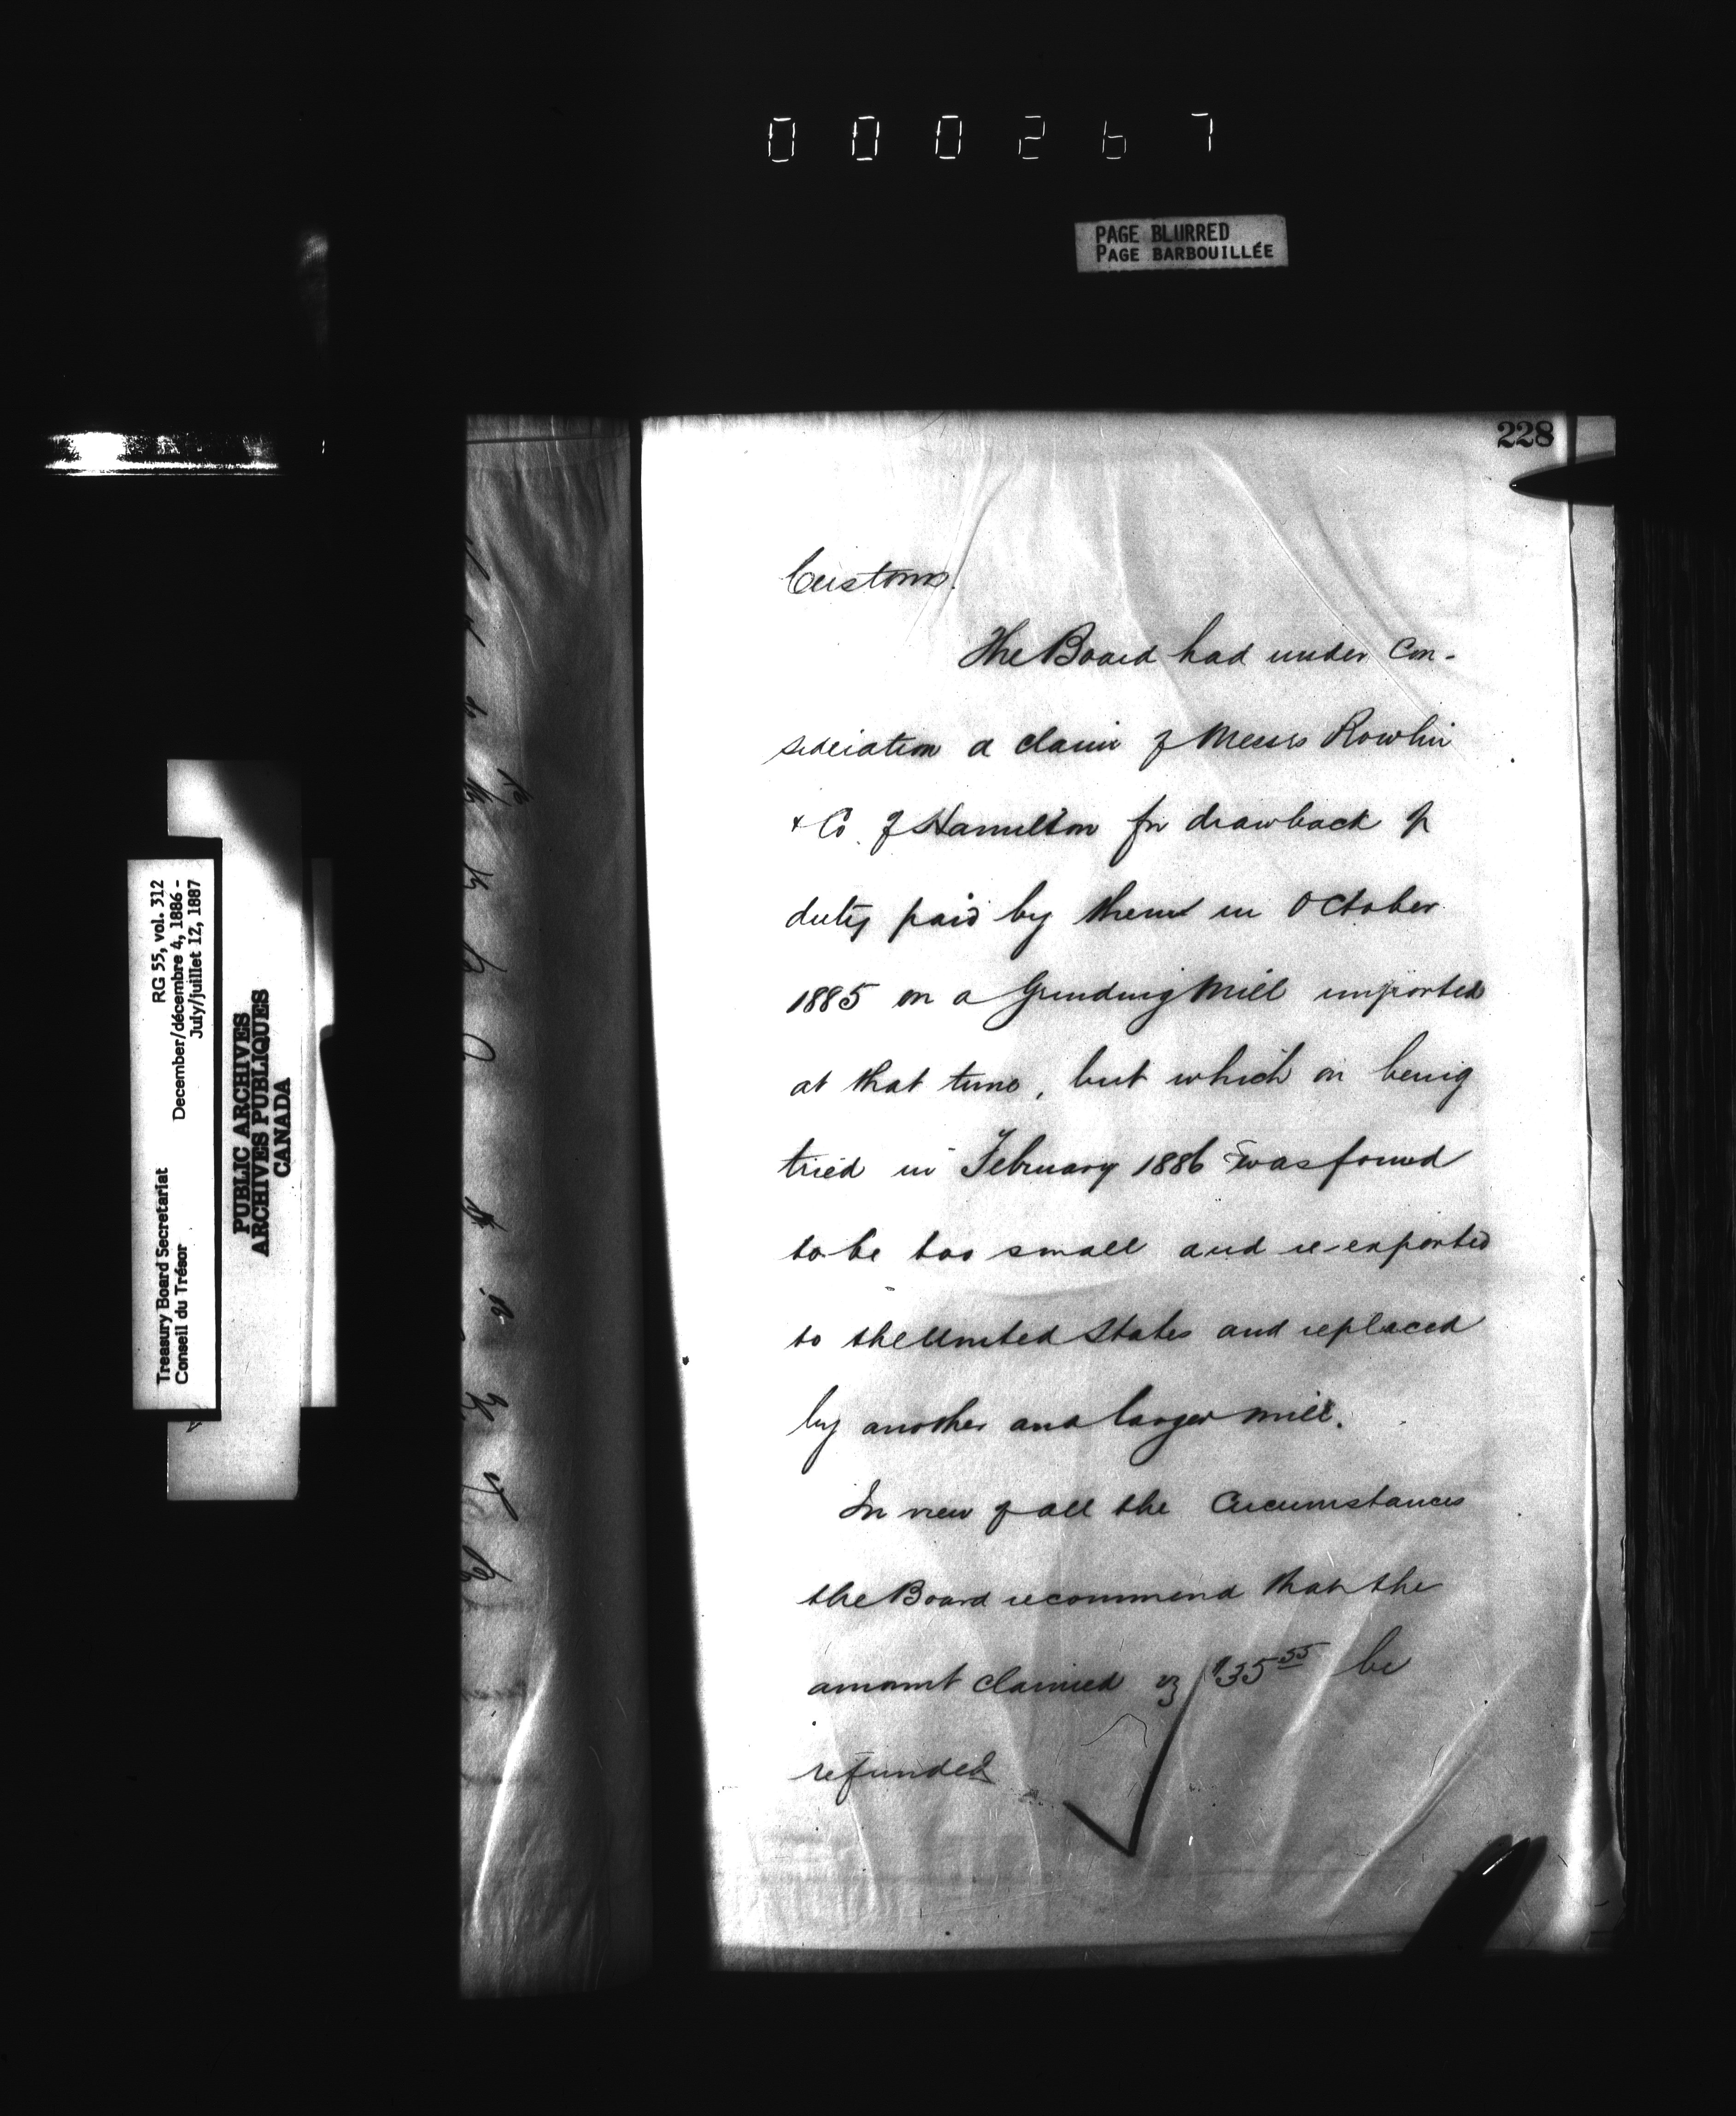 000267
PAGE BLURRED
PAGE BARBOUILLÉE
228
Customs.
The Board had under Con-
sideration a claim of Messrs Rowlin
& Co. of Hamilton for drawback of
duty paid by them in October
1885 on a Grinding Mill imported
at that time, but which on being
tried in February 1886 was found
to be too small and re-exported
to the United States and replaced
by another and larger mill.
In view of all the Circumstances
the Board recommend that the
amount claimed vz $35 55 be
refunded
Treasury Board Secretariat RG 55, vol. 312
Conseil du Trésor December/décembre 4, 1886 -
July/juillet 12, 1887
PUBLIC ARCHIVES
ARCHIVES PUBLIQUES
CANADA